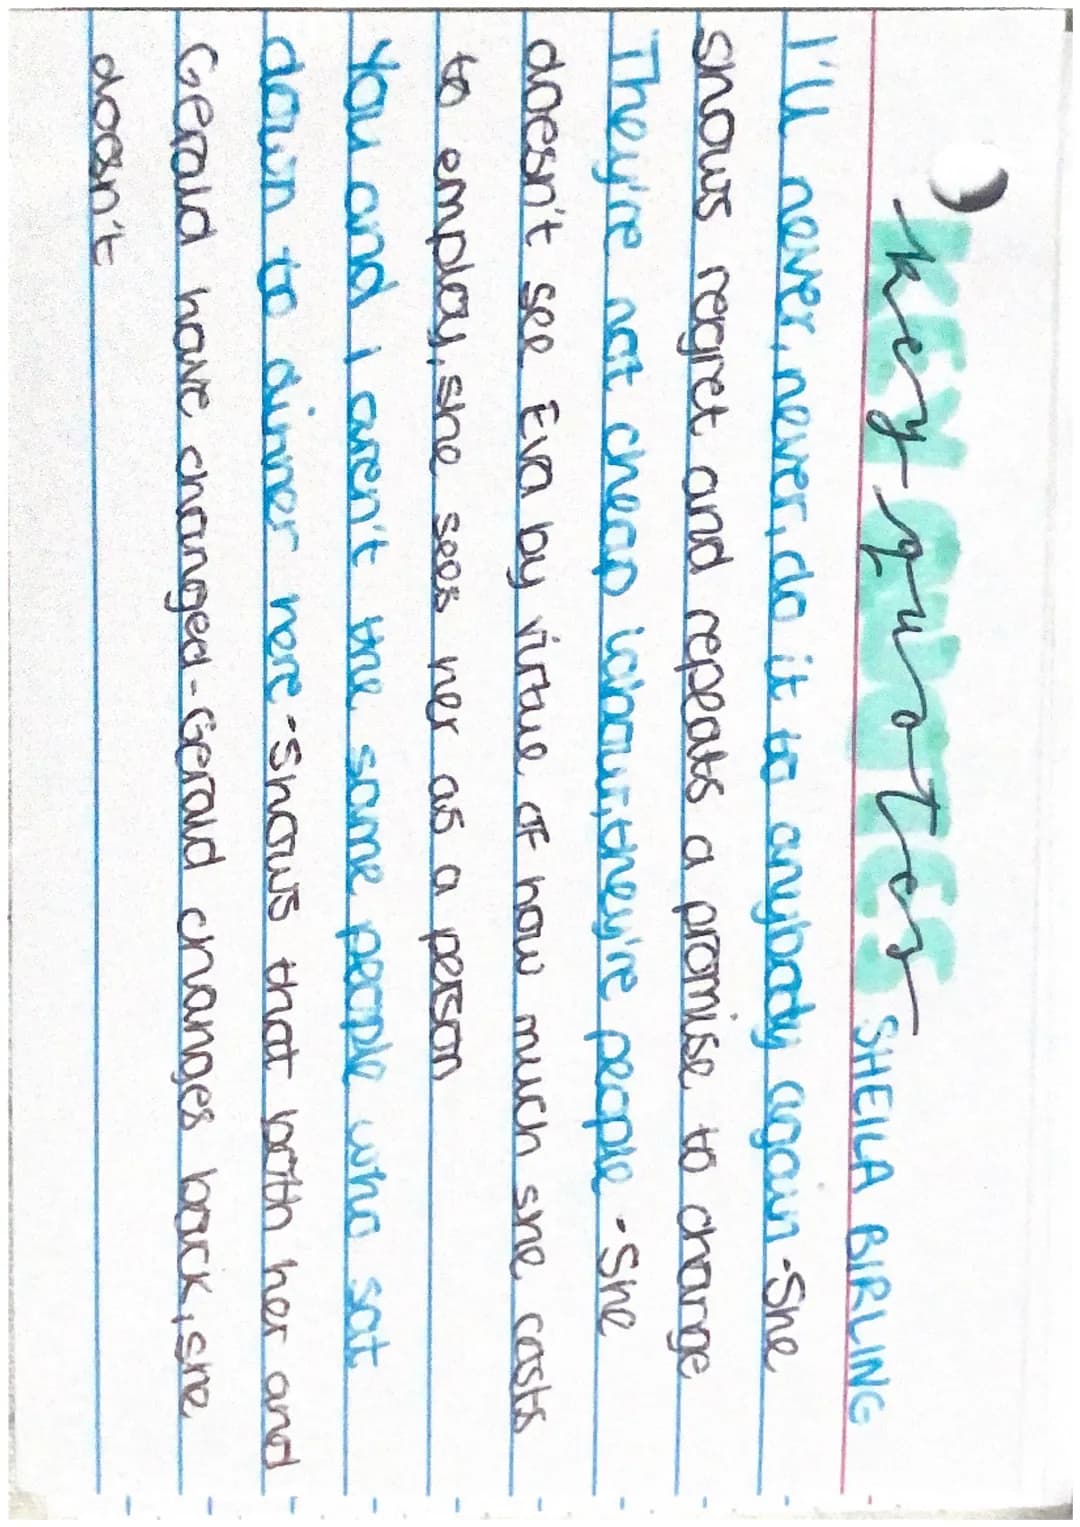 KEY QUOTES key quotes SHEILA BIRLING
I'll never, never, do it to anybody again - She
shows regret and repeats a promise to change
They're not cheap labour, they're people - She
doesn't see Eva by virtue of how much she costs
to employ, she sees her as a person
You and I aren't the same people who sat
down to dinner here - Shows that both her and
Gerald have changed - Gerald changes back, she
doesn't